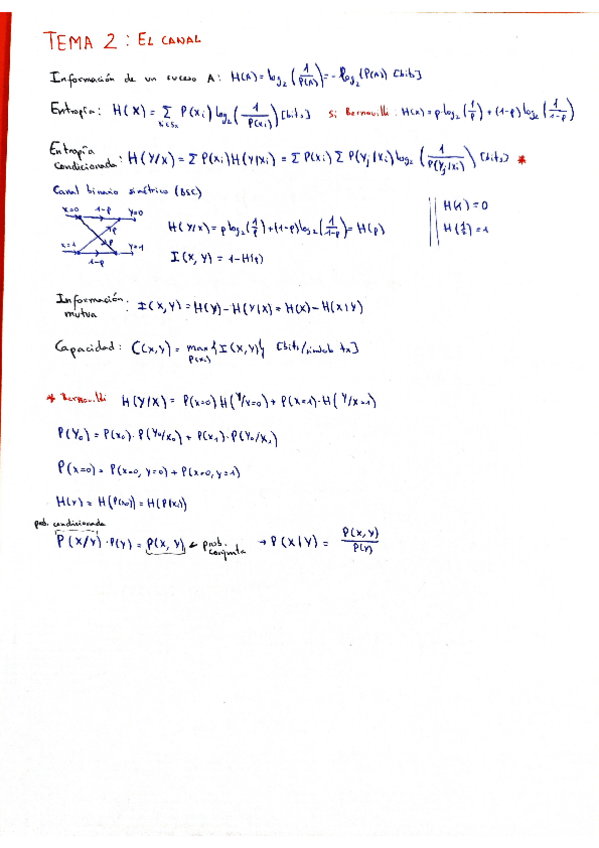 TEMA 2 : EL CANAL
Información de un suceso A: H(A) = log₂ (1/P(A)) = - log₂ (P(A)) [bits]
Entropía: H(X) = Σ P(xᵢ) log₂ (1/P(xᵢ)) [bits] Si Bernouilli: H(x) = p·log₂(1/p) + (1-p) log₂ (1/1-p)
xᵢ∈Sₓ
Entropía condicionada: H(Y/X) = Σ P(xᵢ) H(Y|xᵢ) = Σ P(xᵢ) Σ P(Yⱼ/xᵢ) log₂ (1/P(Yⱼ/xᵢ)) [bits] *
Canal binario simétrico (BSC)
x=0 1-p Y=0
p
p
x=1 1-p Y=1
H(Y/X) = p log₂(1/p) + (1-p) log₂(1/1-p) = H(p)
I(X,Y) = 1-H(p)
H(1) = 0
H(1/2) = 1
Información mutua: I(X,Y) = H(Y) - H(Y|X) = H(X) - H(X|Y)
Capacidad: C(X,Y) = max {I(X,Y)} [bits/simbolo tx]
P(xᵢ)
* Bernouilli H(Y/X) = P(x=0) H(Y/x=0) + P(x=1)·H(Y/x=1)
P(Y₀) = P(x₀)·P(Y₀/x₀) + P(x₁)·P(Y₀/x₁)
P(x=0) = P(x=0, y=0) + P(x=0, y=1)
H(Y) = H(P(x₀)) = H(P(x₁))
prob. condicionada
P(X/Y)·P(Y) = P(X,Y) ← prob. conjunta → P(X|Y) = P(X,Y)/P(Y)